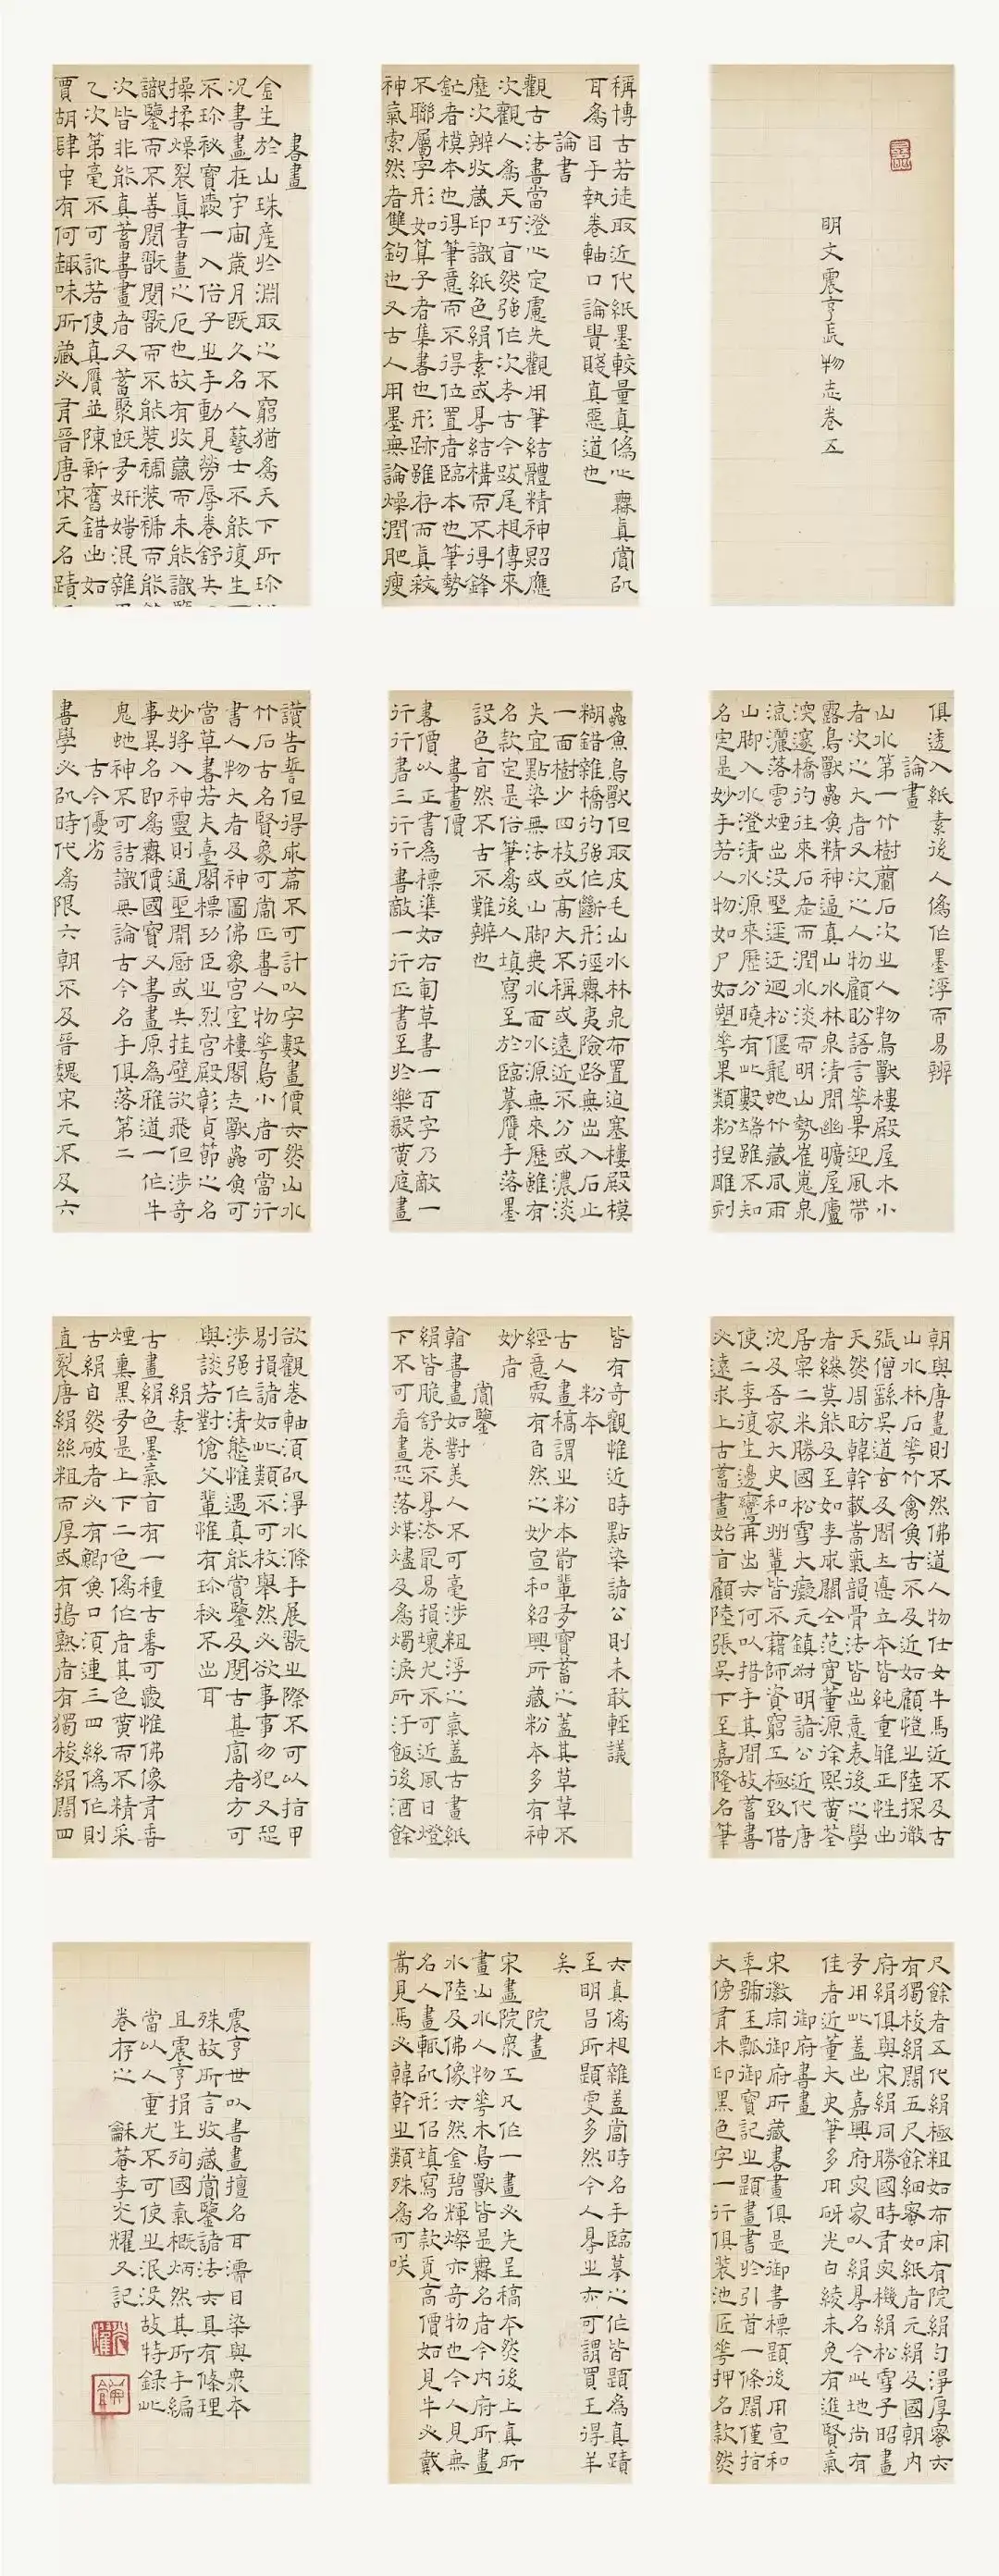 明文震亨長物志卷五
書畫
金生於山珠產於淵取之不窮猶為天下所珍
況書畫在宇宙歲月既久名人藝士不能復生
不珍秘寶愛一入俗子之手動見勞辱卷舒失
操揉燥裂真書畫之厄也故有收藏而未能識鑒
識鑒而不善閱翫閱翫而不能裝褫裝褫而能
次皆非能真蓄書畫者又蓄聚既多妍媸混雜
乙次第毫不可訛若使真贗並陳新舊錯出如
賈胡肆中有何趣味所藏必有晉唐宋元名蹟
稱博古若徒取近代紙墨較量真偽心無真賞以
耳為目手執卷軸口論貴賤真惡道也
論書
觀古法書當澄心定慮先觀用筆結體精神照應
次觀人為天巧自然強作次考古今跋尾相傳來
歷次辨收藏印識紙色絹素或得結構而不得鋒
鋩者模本也得筆意而不得位置者臨本也筆勢
不聯屬字形如算子者集書也形跡雖存而真彩
神氣索然者雙鉤也又古人用墨無論燥潤肥瘦
俱透入紙素後人偽作墨浮而易辨
論畫
山水第一竹樹蘭石次之人物鳥獸樓殿屋木小
者次之大者又次之人物顧盼語言花果迎風帶
露鳥獸蟲魚精神逼真山水林泉清閒幽曠屋廬
深邃橋彴往來石老而潤水淡而明山勢崔嵬泉
流灑落雲煙出沒野逕迂迴松偃龍蛇竹藏風雨
山腳入水澄清水源來歷分曉有此數端雖不知
名定是妙手若人物如尸如塑花果類粉捏雕刻
蟲魚鳥獸但取皮毛山水林泉布置迫塞樓殿模
糊錯雜橋彴強作斷形徑無夷險路無出入石止
一面樹少四枝或高大不稱或遠近不分或濃淡
失宜點染無法或山腳無水面水源無來歷雖有
名款定是俗筆為後人填寫至於臨摹贗手落墨
設色自然不古不難辨也
書畫價
書價以正書為標準如右軍草書一百字乃敵一
行行書三行行書敵一行正書至於樂毅黃庭畫
讚告誓但得成篇不可計以字數畫價亦然山水
竹石古名賢象可當正書人物花鳥小者可當行
書人物大者及神圖佛象宮室樓閣走獸蟲魚可
當草書若夫臺閣標功臣之烈宮殿彰貞節之名
妙將入神靈則通聖開廚或失挂壁欲飛但涉奇
事異名即為無價國寶又書畫原為雅道一作牛
鬼蛇神不可詰識無論古今名手俱落第二
古今優劣
書學必以時代為限六朝不及晉魏宋元不及六
朝與唐畫則不然佛道人物仕女牛馬近不及古
山水林石花竹禽魚古不及近如顧愷之陸探微
張僧繇吳道玄及閻立德立本皆純重雅正性出
天然周昉韓幹戴嵩氣韻骨法皆出意表後之學
者終莫能及至如李成關仝范寬董源徐熙黃荃
居寀二米勝國松雪大癡元鎮叔明諸公近代唐
沈及吾家太史和州輩皆不藉師資窮工極致借
使二李復生邊鸞再出亦何以措手其間故蓄書
必遠求上古蓄畫始自顧陸張吳下至嘉隆名筆
皆有奇觀惟近時點染諸公則未敢輕議
粉本
古人畫稿謂之粉本前輩多寶蓄之蓋其草草不
經意處有自然之妙宣和紹興所藏粉本多有神
妙者
賞鑒
翰書畫如對美人不可毫涉粗浮之氣蓋古畫紙
絹皆脆舒卷不得法最易損壞尤不可近風日燈
下不可看畫恐落煤燼及為燭淚所汙飯後酒餘
欲觀卷軸須以淨水滌手展翫之際不可以指甲
剔損諸如此類不可枚舉然必欲事事勿犯又恐
涉強作清態惟遇真能賞鑒及閱古甚富者方可
與談若對傖父輩惟有珍秘不出耳
絹素
古畫絹色墨氣自有一種古香可愛惟佛像有香
煙熏黑多是上下二色偽作者其色黃而不精采
古絹自然破者必有鯽魚口須連三四絲偽作則
直裂唐絹絲粗而厚或有搗熟者有獨梭絹闊四
尺餘者五代絹極粗如布宋有院絹勻淨厚密亦
有獨梭絹闊五尺餘細密如紙者元絹及國朝內
府絹俱與宋絹同勝國時有宓機絹松雪子昭畫
多用此蓋出嘉興府宓家以絹得名今此地尚有
佳者近董太史筆多用砑光白綾未免有進賢氣
御府書畫
宋徽宗御府所藏書畫俱是御書標題後用宣和
年號玉瓢御寶記之題畫書於引首一條闊僅指
大傍有木印黑色字一行俱裝池匠花押名款然
亦真偽相雜蓋當時名手臨摹之作皆題為真蹟
至明昌所題更多然今人得之亦可謂買王得羊
矣
院畫
宋畫院眾工凡作一畫必先呈稿本然後上真所
畫山水人物花木鳥獸皆是無名者今內府所畫
水陸及佛像亦然金碧輝燦亦奇物也今人見無
名人畫輒以形似填寫名款覓高價如見牛必戴
嵩見馬必韓幹之類殊為可咲
震亨世以書畫擅名耳濡目染與眾本
殊故所言收藏賞鑒諸法亦具有條理
且震亨捐生殉國氣概炳然其所手編
當以人重尤不可使之泯沒故特錄此
卷存之
龢菴李光耀又記